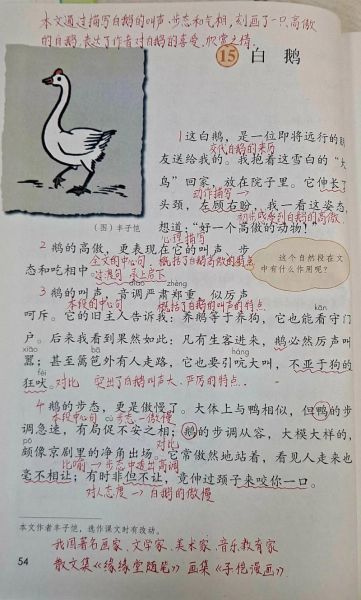 本文通过描写白鹅的叫声、步态和吃相,刻画了一只高傲
的白鹅,表达了作者对白鹅的喜爱、欣赏之情。
15 白 鹅
(图)丰子恺
1 这白鹅,是一位即将远行的朋
交代白鹅的来历
友送给我的。我抱着这雪白的“大
鸟”回家,放在院子里。它伸长了
动作描写
头颈,左顾右盼,我一看这姿态,
想道:“好一个高傲的动物!”
心理描写
2 鹅的高傲,更表现在它的叫声、步
全文的中心句 概括了白鹅高傲的特点
态和吃相中。
过渡句 承上启下
这个自然段在文
中有什么作用呢?
diào zhèng
3 鹅的叫声,音调严肃郑重,似厉声
本段的中心句 概括了白鹅叫声的特点
kān
呵斥。它的旧主人告诉我:养鹅等于养狗,它也能看守门
户。后来我看到果然如此:凡有生客进来,鹅必然厉声叫
xiāo bā háng
嚣;甚至篱笆外有人走路,它也要引吭大叫,不亚于狗的
fèi
狂吠。 对比 突出了白鹅叫声大、严厉的特点.
4 鹅的步态,更是傲慢了。大体上与鸭相似,但鸭的步
本段中心句 步态—傲慢
调急速,有局促不安之相;鹅的步调从容,大模大样的,
对比
pō
颇像京剧里的净角出场。它常傲然地站着,看见人走来也
比喻 步态中透出高调
毫不相让;有时非但不让,竟伸过颈子来咬你一口。
对人态度→白鹅的傲慢
本文作者丰子恺,选作课文时有改动。
54
我国著名画家、文学家、美术家、音乐教育家
散文集《缘缘堂随笔》 画集《子恺漫画》